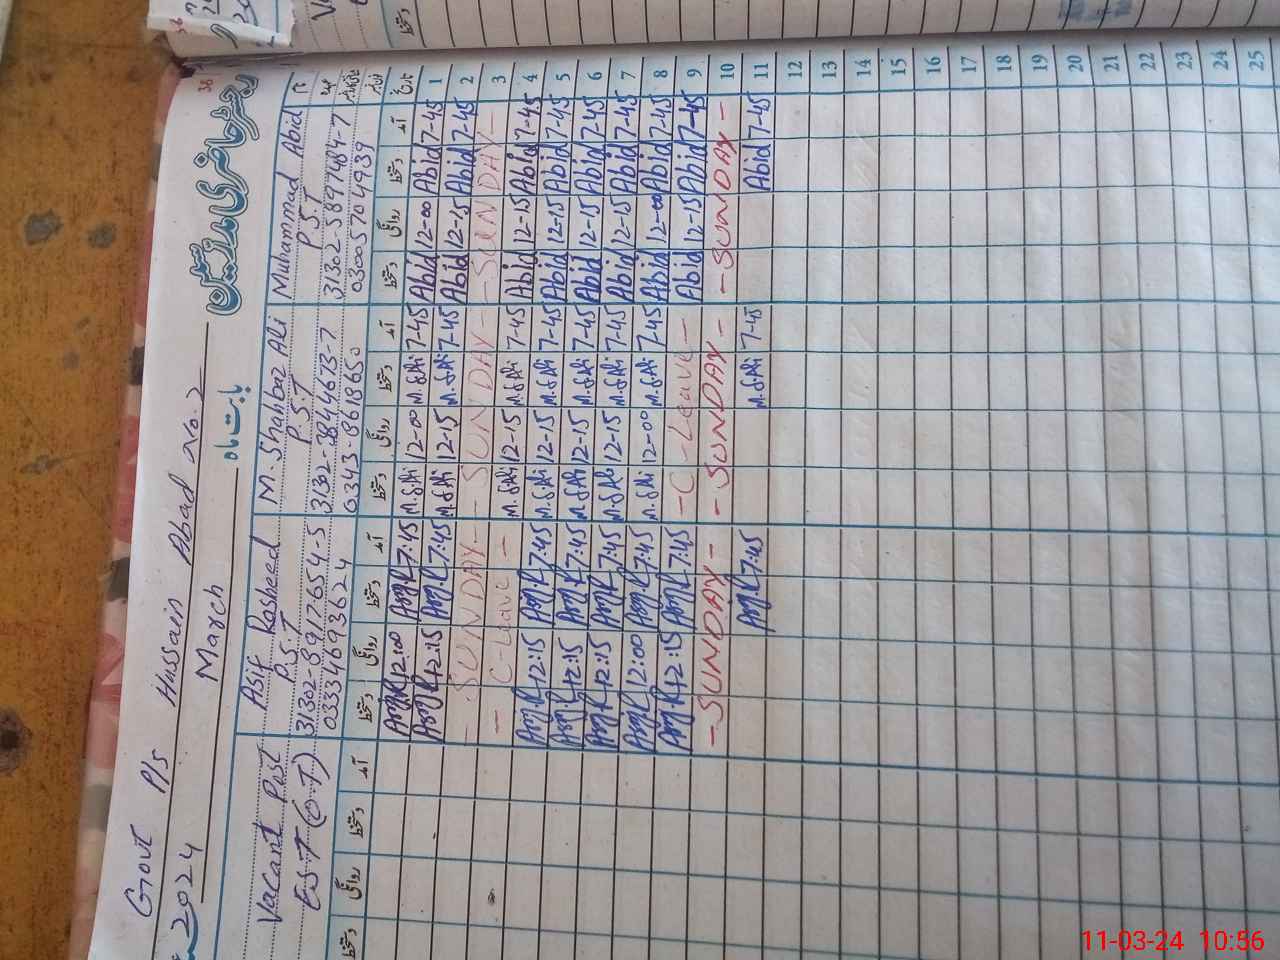 Govt P/s Hussain Abad no. 2
2024 March بابت ماہ
رجسٹر حاضری مدرسین
36
Vacant Post
EST (O.T)
Asif Rasheed
P.S.T
31302-8917654-5
03334693624
M. Shahbaz Ali
P.S.T
31302-3844673-7
0343-8618650
Muhammad Abid
P.S.T
31302-5897484-7
03005704939
نام
عہدہ
تاریخ آمد دستخط روانگی دستخط آمد دستخط روانگی دستخط آمد دستخط روانگی دستخط آمد دستخط روانگی دستخط
1 7-45 Abid 12-00 Abid 7-45 M.SAli 12-00 M.SAli 7:45 12:00
2 7-45 Abid 12-15 Abid 7-45 M.SAli 12-15 M.SAli 7:45 12:15
3 - SUNDAY - - SUNDAY - - SUNDAY -
4 7-45 Abid 12-15 Abid 7-45 M.SAli 12-15 M.SAli - C-Leave -
5 7-45 Abid 12-15 Abid 7-45 M.SAli 12-15 M.SAli 7:45 12:15
6 7-45 Abid 12-15 Abid 7-45 M.SAli 12-15 M.SAli 7:45 12:15
7 7-45 Abid 12-15 Abid 7-45 M.SAli 12-15 M.SAli 7:45 12:15
8 7-45 Abid 12-00 Abid 7-45 M.SAli 12-00 M.SAli 7:45 12:00
9 7-45 Abid 12-15 Abid - C-Leave - 7:45 12:15
10 - SUNDAY - - SUNDAY - - SUNDAY -
11 7-45 Abid 7-45 M.SAli 7:45
12
13
14
15
16
17
18
19
20
21
22
23
24
25
11-03-24 10:56